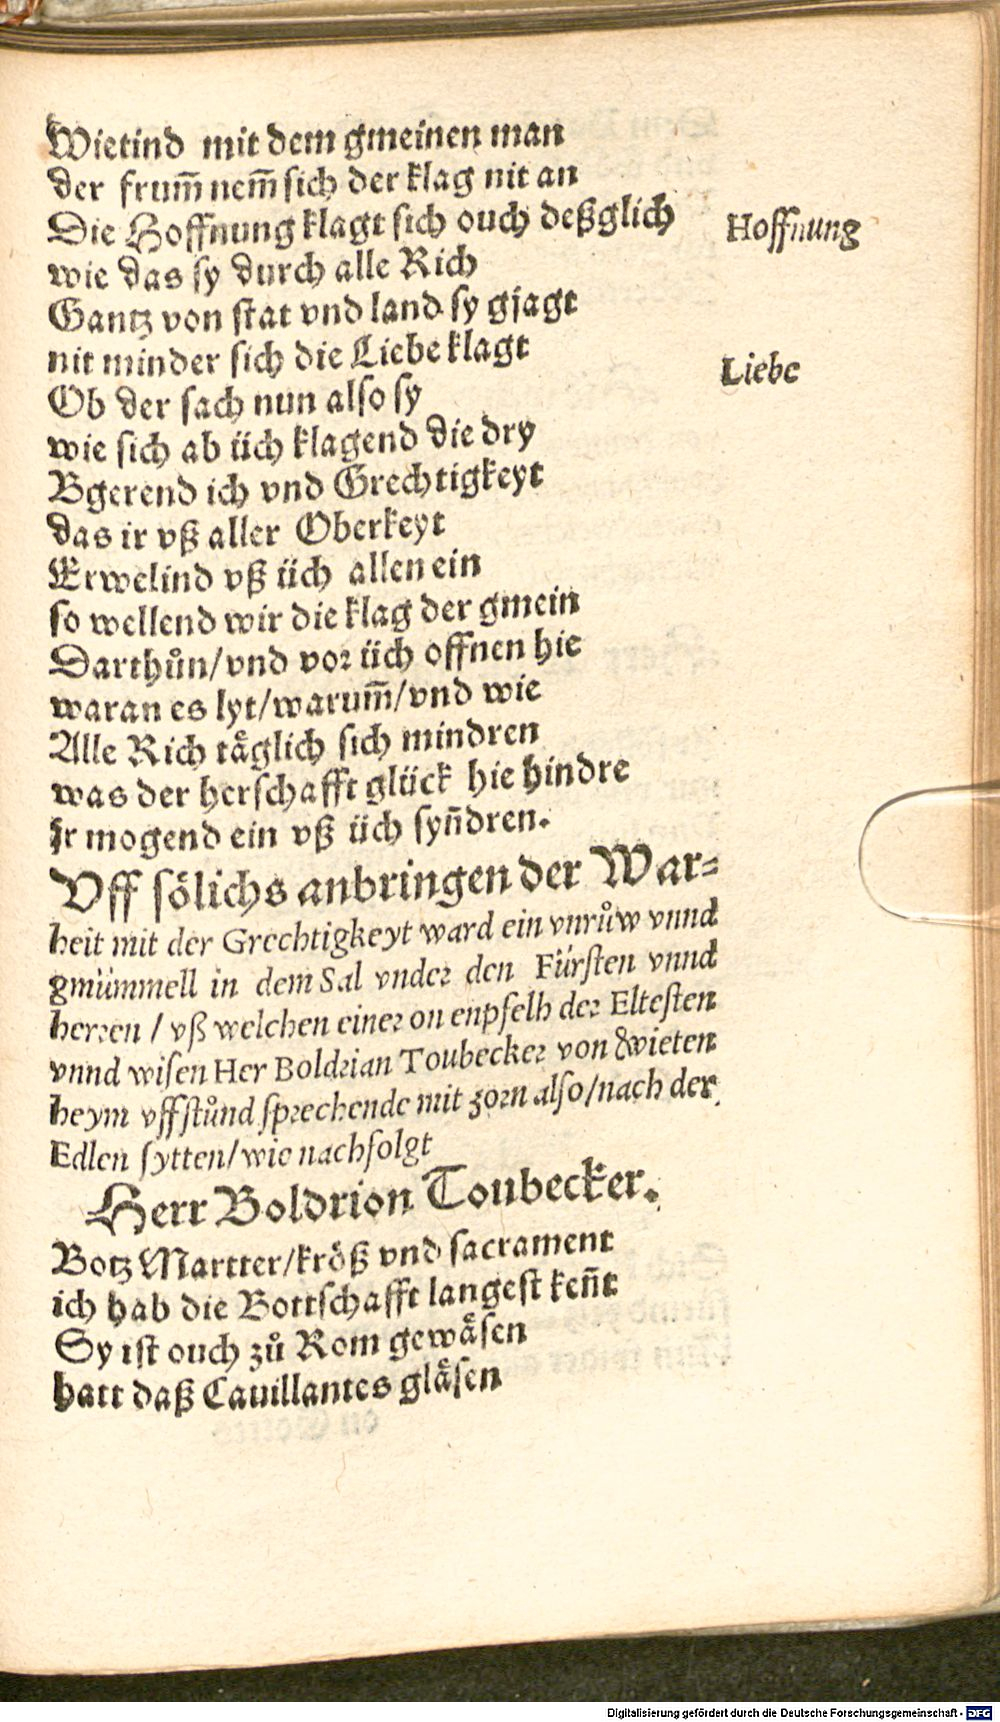 Wietind mit dem gmeinen man
der frum̄ nem̄ sich der klag nit an
Die Hoffnung klagt sich ouch deßglich
Hoffnung
wie das sy durch alle Rich
Gantz von stat vnd land sy gjagt
nit minder sich die Liebe klagt
Liebe
Ob der sach nun also sy
wie sich ab üch klagend die dry
Bgerend ich vnd Grechtigkeyt
das ir vß aller Oberkeyt
Erwelind vß üch allen ein
so wellend wir die klag der gmein
Darthůn/vnd vor üch offnen hie
waran es lyt/warum̄/vnd wie
Alle Rich täglich sich mindren
was der herschafft glück hie hindre
Ir mogend ein vß üch syn̄dren.
Vff sölichs anbringen der War-
heit mit der Grechtigkeyt ward ein vnrůw vnnd
gmümmell in dem Sal vnder den Fürsten vnnd
herren / vß welchen einer on enpfelh der Eltesten
vnnd wisen Her Boldrian Toubecker von Wieten
heym vffstůnd sprechende mit zorn also/nach der
Edlen sytten/wie nachfolgt
Herr Boldrion Toubecker.
Botz Martter/kröß vnd sacrament
ich hab die Bottschafft langest ken̄t
Sy ist ouch zů Rom gewäsen
hatt daß Cauillantes gläsen
Digitalisierung gefördert durch die Deutsche Forschungsgemeinschaft - DFG